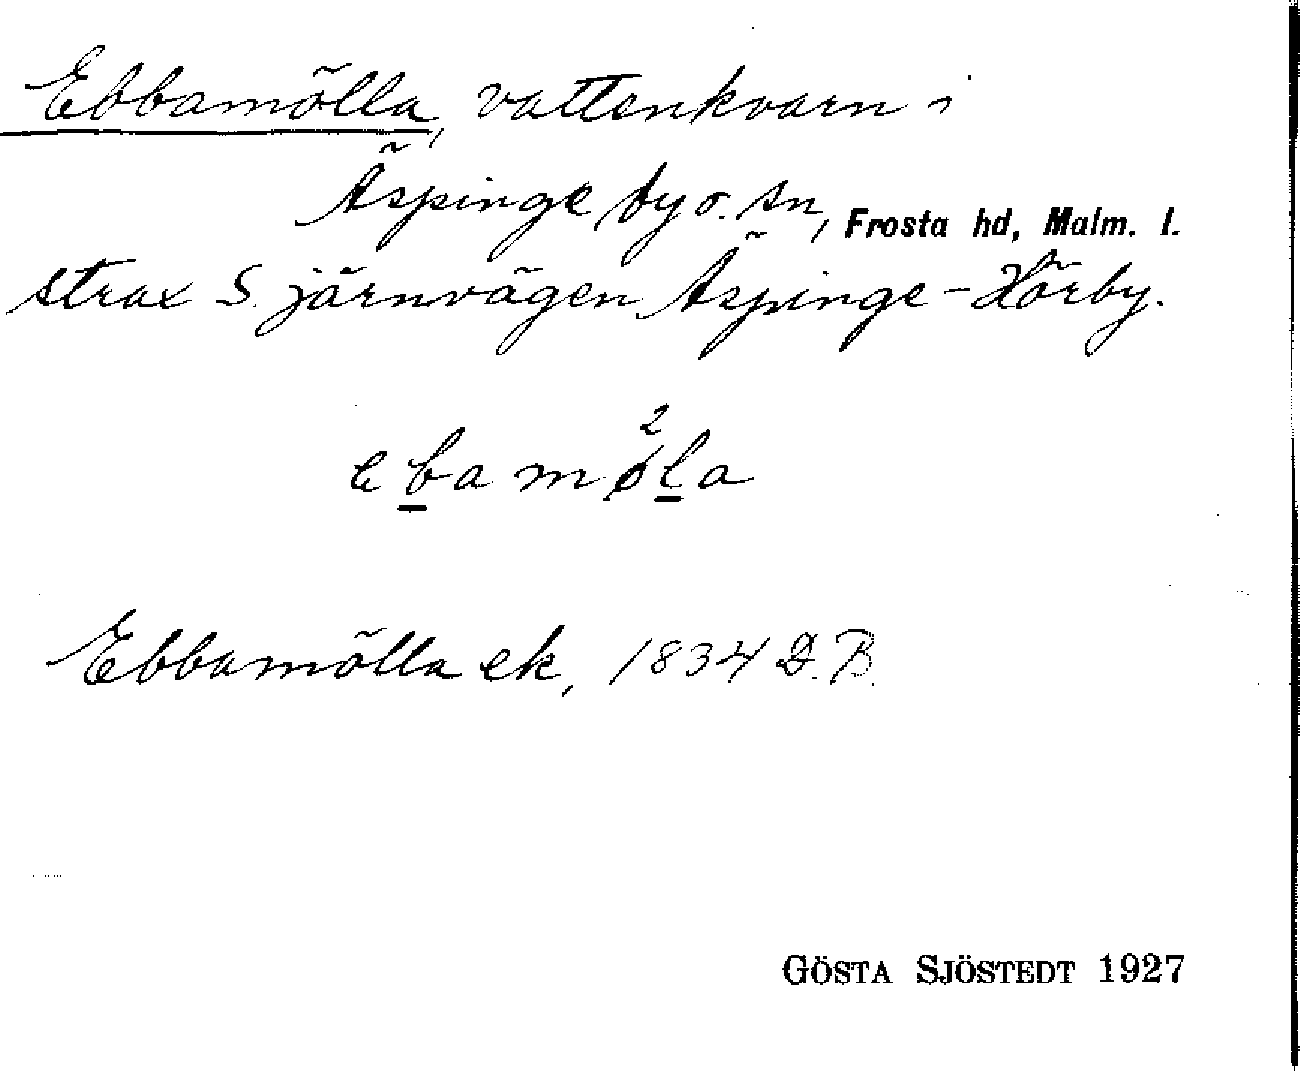 Ebbamölla, vattenkvarn i
Äspinge by o. sn, Frosta hd, Malm. l.
strax S. järnvägen Äspinge - Hörby.
ebamø²la
Ebbamölla ek, 1834 D.B.
GÖSTA SJÖSTEDT 1927